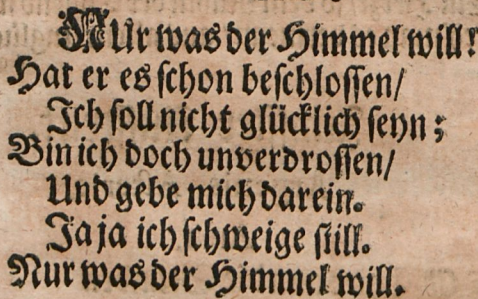 NUr was der Himmel will!
Hat er es schon beschlossen/
Ich soll nicht glücklich seyn;
Bin ich doch unverdrossen/
Und gebe mich darein.
Ja ja ich schweige still.
Nur was der Himmel will.